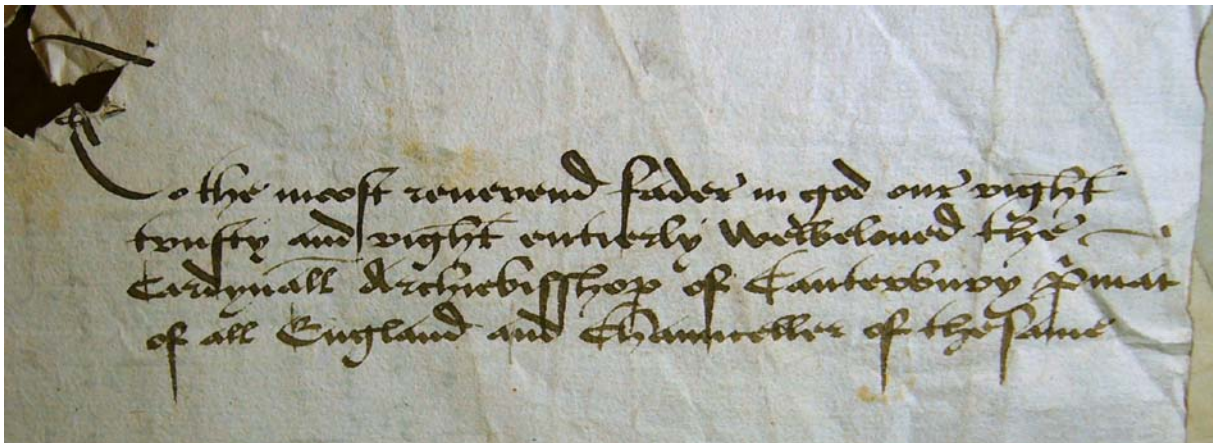 To the moost reuerend fader in god our right
trusty and right entierly welbeloued the
Cardynall Archiebisshop of Canterbury p'mat
of all England and Chaunceller of the same